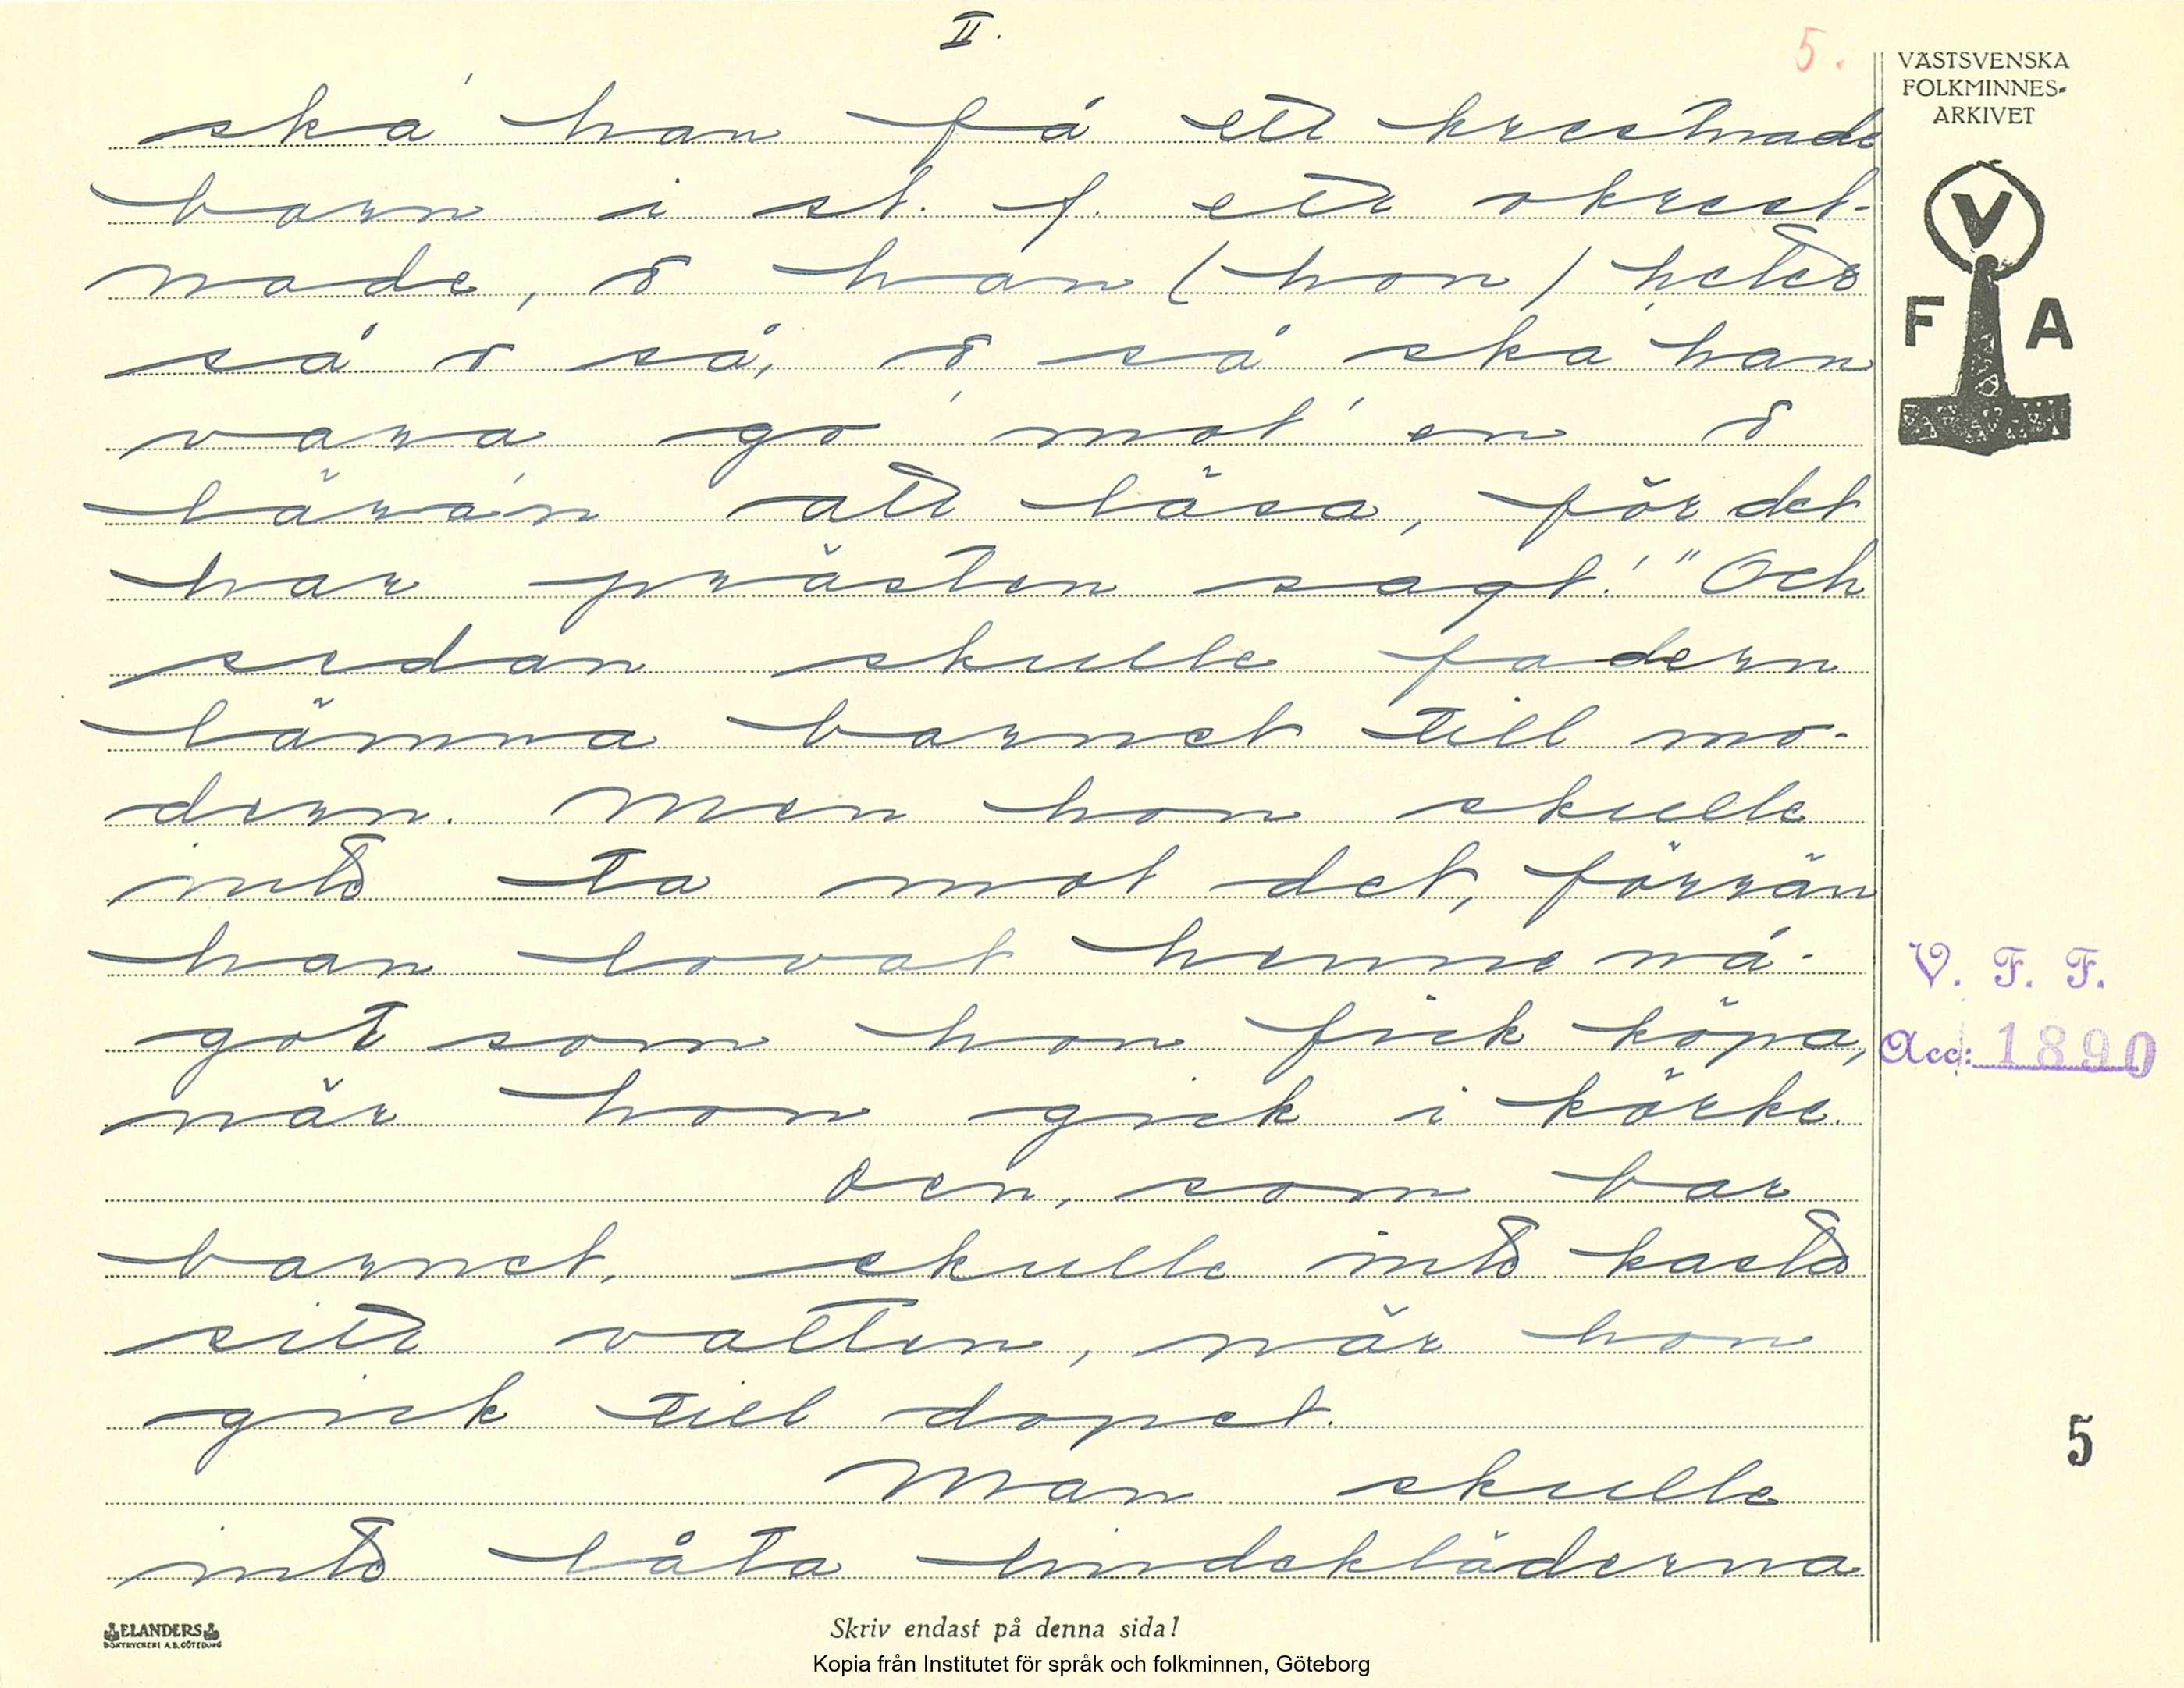 II.
5.
VÄSTSVENSKA
FOLKMINNES-
ARKIVET
V
F A
ska' han få ett krestnade
barn i st. f. ett okrest-
nade, å han (hon) heter
så å så, å så ska' han
vara go' mot' en å
lära'n att läsa, för det
har prästen sagt!' " Och
sedan skulle fadern
lämna barnet till mo-
dern. Men hon skulle
inte ta mot det, förrän
han lovat henne nå-
got som hon fick köpa,
när hon gick i körke.
Den, som bar
barnet, skulle inte kasta
sitt vatten, när hon
gick till dopet.
Man skulle
inte låta lindekläderna
V. F. F.
Acc: 1890
5
ELANDERS
BOKTRYCKERI A.B. GÖTEBORG
Skriv endast på denna sida!
Kopia från Institutet för språk och folkminnen, Göteborg